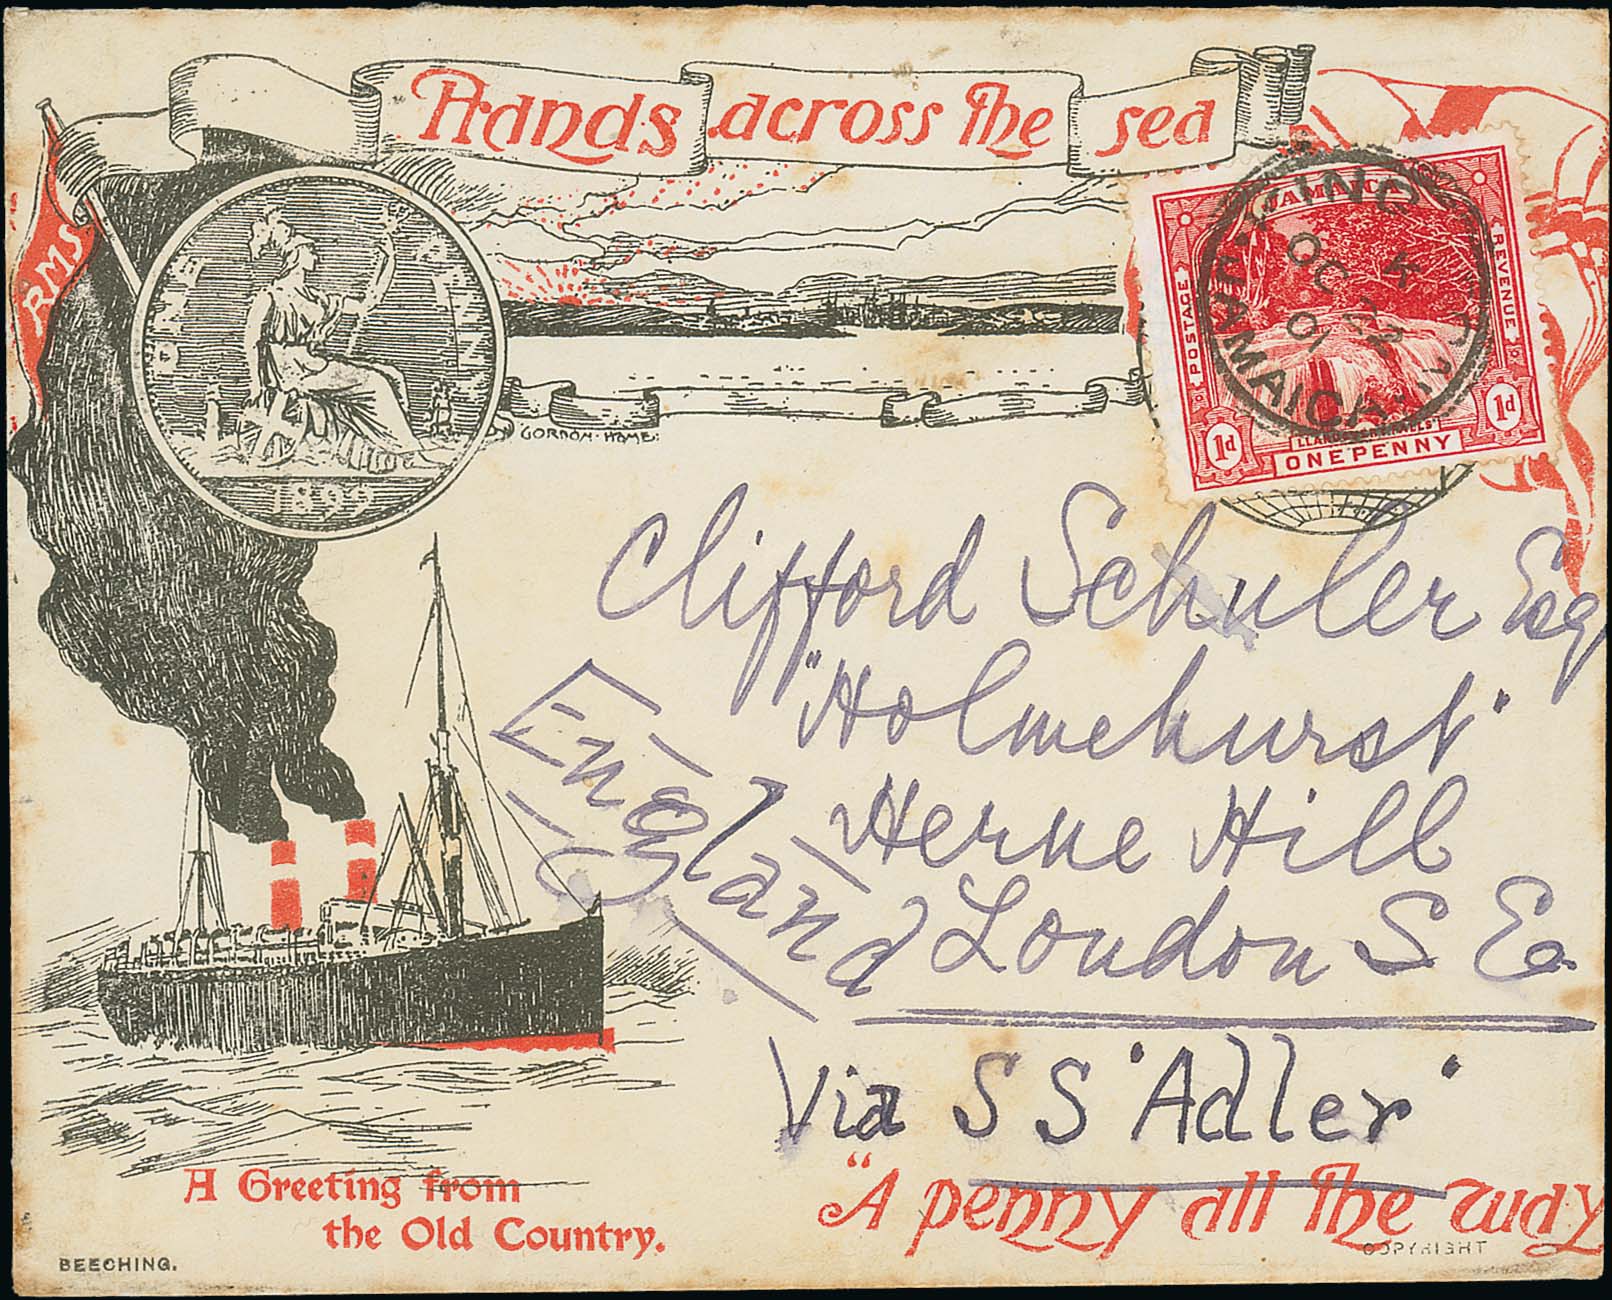 Hands across the sea
RMS
1899
GORDON·HOME:
JAMAICA
POSTAGE
REVENUE
1d
1d
LLANDOVERY FALLS
ONE PENNY
KINGSTON
K
OC 22
01
JAMAICA
Clifford Schuler Esq
"Holmehurst"
Herne Hill
London S E.
England
Via S S 'Adler'
A Greeting from
the Old Country.
"A penny all the way
COPYRIGHT
BEECHING.